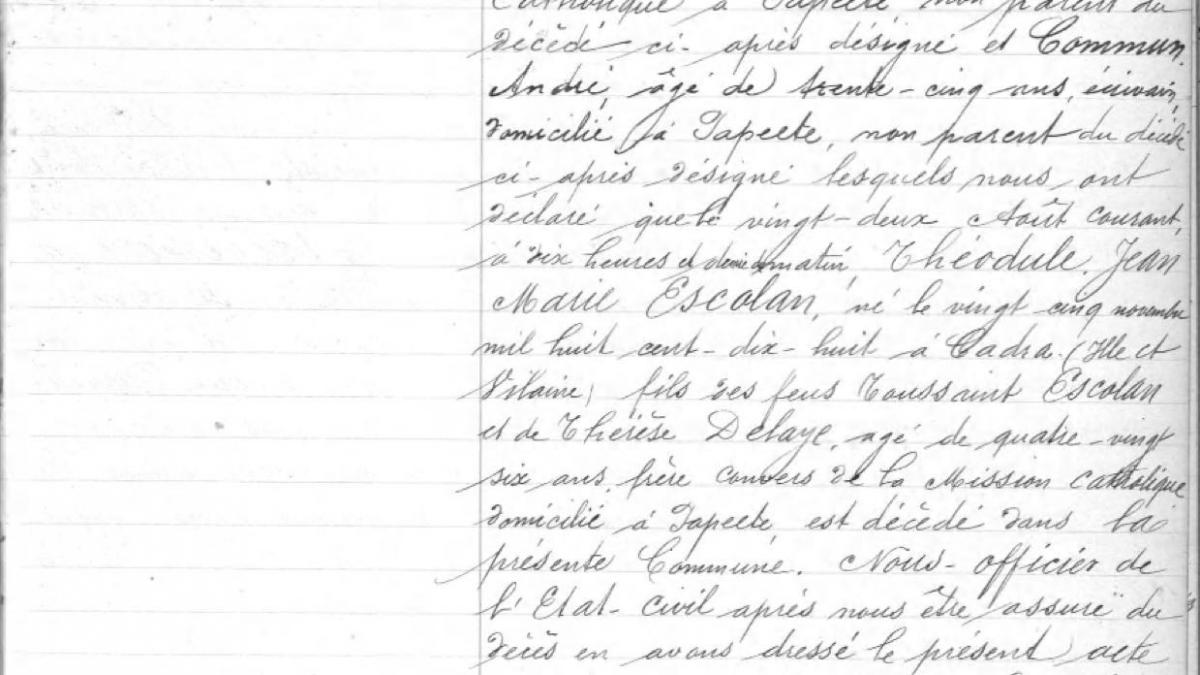 Catholique à Papeete non parent du
décédé ci-après désigné et Commun,
André, âgé de trente-cinq ans, écrivain,
domicilié à Papeete, non parent du décédé
ci-après désigné lesquels nous ont
déclaré que le vingt-deux Août courant,
à dix heures et demie du matin, Théodule, Jean
Marie Escolan, né le vingt cinq novembre
mil huit cent-dix-huit à Cadra (Ille et
Vilaine) fils des feus Toussaint Escolan
et de Thérèse Delaye, agé de quatre-vingt
six ans, frère convers de la Mission Catholique
domicilié à Papeete, est décédé dans la
présente Commune. Nous-officier de
l'Etat-civil après nous être assuré du
décès en avons dressé le présent acte